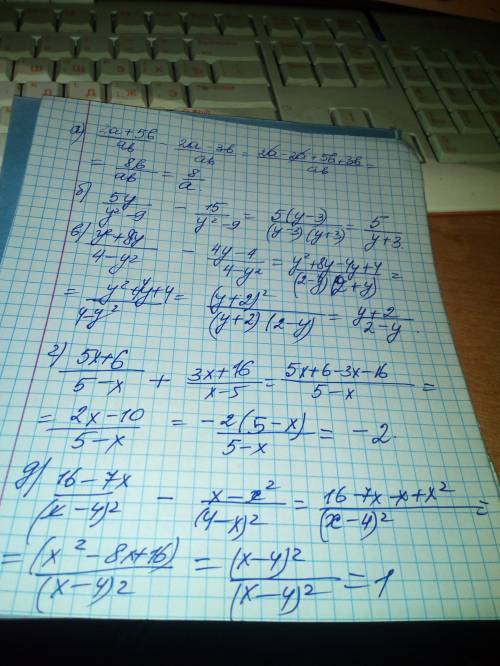 а) 2a+5b/ab - 2a-3b/ab = 2a-2a+5b+3b/ab =
= 8b/ab = 8/a
б) 5y/y²-9 - 15/y²-9 = 5(y-3)/(y-3)(y+3) = 5/y+3
в) y²+8y/4-y² - 4y-4/4-y² = y²+8y-4y+4/(2-y)(2+y) =
= y²+4y+4/4-y² = (y+2)²/(y+2)(2-y) = y+2/2-y
г) 5x+6/5-x + 3x+16/x-5 = 5x+6-3x-16/5-x =
= 2x-10/5-x = -2(5-x)/5-x = -2.
д) 16-7x/(x-4)² - x-x²/(4-x)² = 16-7x-x+x²/(x-4)² =
= (x²-8x+16)/(x-4)² = (x-4)²/(x-4)² = 1